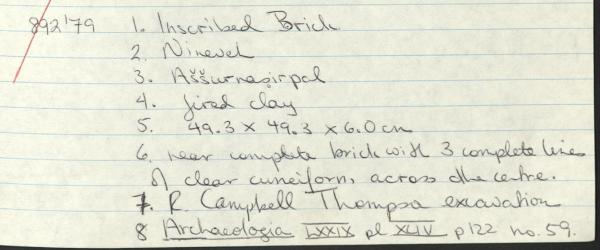 892'79 1. Inscribed Brick
2. Nineveh
3. Aššurnaṣirpal
4. fired clay
5. 49.3 x 49.3 x 6.0 cm
6. near complete brick with 3 complete lines
of clear cuneiform, across the centre.
7. R. Campbell Thompson excavation
8 Archaeologia LXXIX pl XLIV p122 no. 59.